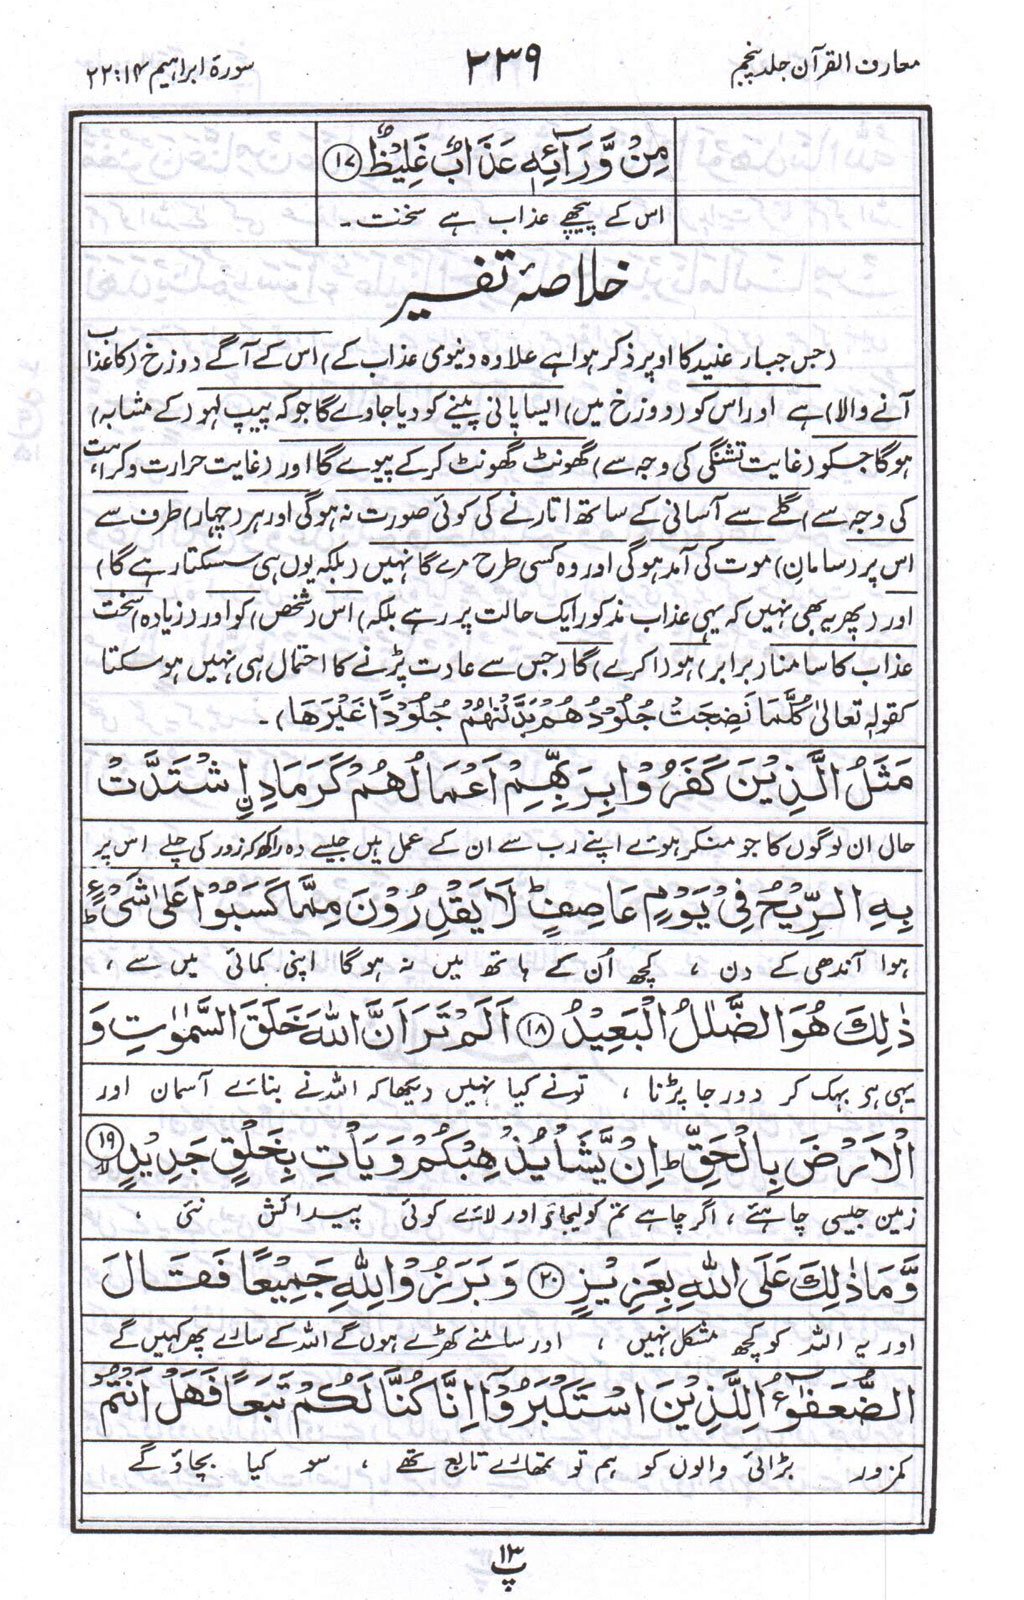 معارف القرآن جلد پنجم
۲۳۹
سورۃ ابراہیم ۱۴:۲۲
مِنْ وَّرَآئِهٖ عَذَابٌ غَلِيْظٌ ⑰
اس کے پیچھے عذاب ہے سخت۔
خلاصۂ تفسیر
(جس جبار عنید کا اوپر ذکر ہوا ہے علاوہ دنیوی عذاب کے) اس کے آگے دوزخ (کا عذاب
آنے والا) ہے اور اس کو (دوزخ میں) ایسا پانی پینے کو دیا جاوے گا جو کہ پیپ لہو (کے مشابہ)
ہوگا جس کو (غایت تشنگی کی وجہ سے) گھونٹ گھونٹ کر کے پیوے گا اور (غایت حرارت و کراہت
کی وجہ سے) گلے سے آسانی کے ساتھ اتارنے کی کوئی صورت نہ ہوگی اور ہر (چہار) طرف سے
اس پر (سامان) موت کی آمد ہوگی اور وہ کسی طرح مرے گا نہیں (بلکہ یوں ہی سسکتا رہے گا)
اور (پھر یہ بھی نہیں کہ یہی عذاب مذکور ایک حالت پر رہے بلکہ) اس (شخص) کو اور (زیادہ) سخت
عذاب کا سامنا (برابر) ہو (ا کرے) گا (جس سے عادت پڑنے کا احتمال ہی نہیں ہو سکتا
کقولہ تعالیٰ كُلَّمَا نَضِجَتْ جُلُوْدُهُمْ بَدَّلْنٰهُمْ جُلُوْدًا غَيْرَهَا)۔
مَثَلُ الَّذِيْنَ كَفَرُوْا بِرَبِّهِمْ اَعْمَالُهُمْ كَرَمَادِ اِۨشْتَدَّتْ
حال ان لوگوں کا جو منکر ہوئے اپنے رب سے ان کے عمل ہیں جیسے وہ راکھ کہ زور کی چلے اس پر
بِهِ الرِّيْحُ فِيْ يَوْمٍ عَاصِفٍ ؕ لَا يَقْدِرُوْنَ مِمَّا كَسَبُوْا عَلٰى شَيْءٍ ؕ
ہوا آندھی کے دن ، کچھ اُن کے ہاتھ میں نہ ہوگا اپنی کمائی میں سے ،
ذٰلِكَ هُوَ الضَّلٰلُ الْبَعِيْدُ ⑱ اَلَمْ تَرَ اَنَّ اللّٰهَ خَلَقَ السَّمٰوٰتِ وَ
یہی ہے بہک کر دور جا پڑنا ، تونے کیا نہیں دیکھا کہ اللہ نے بنائے آسمان اور
الْاَرْضَ بِالْحَقِّ ؕ اِنْ يَّشَاْ يُذْهِبْكُمْ وَيَاْتِ بِخَلْقٍ جَدِيْدٍ ⑲ ۙ
زمین جیسی چاہئے ، اگر چاہے تم کو لیجائے اور لائے کوئی پیدائش نئی ،
وَّمَا ذٰلِكَ عَلَى اللّٰهِ بِعَزِيْزٍ ⑳ وَبَرَزُوْا لِلّٰهِ جَمِيْعًا فَقَالَ
اور یہ اللہ کو کچھ مشکل نہیں ، اور سامنے کھڑے ہوں گے اللہ کے سارے پھر کہیں گے
الضُّعَفٰٓؤُا لِلَّذِيْنَ اسْتَكْبَرُوْٓا اِنَّا كُنَّا لَكُمْ تَبَعًا فَهَلْ اَنْتُمْ
کمزور بڑائی والوں کو ہم تو تمھارے تابع تھے ، سو کیا بچاؤ گے
پ ۱۳